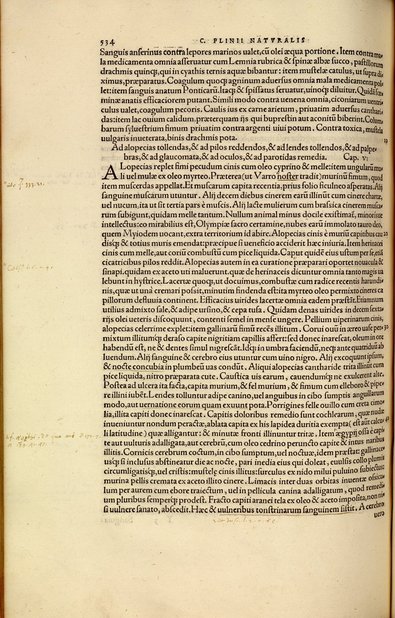 534 C. PLINII NATVRALIS
Sanguis anserinus contra lepores marinos ualet, cū olei æqua portione, Item contra ma
la medicamenta omnia asseruatur cum Lemnia rubrica & spinæ albæ succo, pastillorum
drachmis quinq;, qui in cyathis ternis aquæ bibantur: item mustelæ catulus, ut supra di
ximus, præparatus. Coagulum quoq; agninum aduersus omnia mala medicamenta pol
let: item sanguis anatum Ponticarū. Itaq; & spissatus seruatur, uinoq; diluitur. Quidā fœ
minæ anatis efficaciorem putant. Simili modo contra uenena omnia, ciconiarum uentri
culus ualet, coagulum pecoris. Caulis ius ex carne arietum, priuatim aduersus cantha
ridas: item lac ouium calidum, præterquam ijs qui buprestin aut aconitū biberint. Colum
barum syluestrium fimum priuatim contra argenti uiui potum. Contra toxica, mustela
uulgaris inueterata, binis drachmis pota.
Ad alopecias tollendas, & ad pilos reddendos, & ad lendes tollendos, & ad palpe
bras, & ad glaucomata, & ad oculos, & ad parotidas remedia. Cap. VI:
Alopecias replet fimi pecudum cinis cum oleo cyprino & melle: item ungularū mu
li uel mulæ ex oleo myrteo. Præterea (ut Varro noster tradit) murinū fimum, quod
item muscerdas appellat. Et muscarum capita recentia, prius folio ficulneo asperatas. Alij
sanguine muscarum utuntur. Alij decem diebus cinerem earū illinunt cum cinere chartæ,
uel nucum, ita ut sit tertia pars è muscis. Alij lacte mulierum cum brassica cinerem musca
rum subigunt, quidam melle tantum. Nullum animal minus docile existimatur, minorisue
intellectus: eo mirabilius est, Olympiæ sacro certamine, nubes earū immolato tauro deo,
quem Myiodem uocant, extra territorium id abire. Alopecias cinis è muriū capitibus cau
disq; & totius muris emendat: præcipue si ueneficio acciderit hæc iniuria. Item herinacei
cinis cum melle, aut corij combustū cum pice liquida. Caput quidē eius ustum per se, etiā
cicatricibus pilos reddit. Alopecias autem in ea curatione præparari oportet nouacula &
sinapi, quidam ex aceto uti maluerunt. quæ de herinaceis dicuntur omnia tanto magis ua
lebunt in hystrice. Lacertæ quoq;, ut docuimus, combustæ cum radice recentis harundi
nis, quæ ut una cremari possit, minutim findenda est: ita myrteo oleo permixto cineres ca
pillorum defluuia continent. Efficacius uirides lacertæ omnia eadem præstāt. Etiamnum
utilius admixto sale, & adipe ursino, & cepa tusa. Quidam denas uirides in decem sexta
rijs olei ueteris discoquunt, contenti semel in mense ungere. Pellium uiperinarum cinis,
alopecias celerrime explet: item gallinarū fimū recēs illitum. Corui ouū in æreo uase per
mixtum illitumq; deraso capite nigritiam capilli affert: sed donec inarescat, oleum in ore
habendū est, ne & dentes simul nigrescāt. Idq; in umbra faciendū, neq; ante quatriduū ab
luendum. Alij sanguine & cerebro eius utuntur cum uino nigro. Alij excoquunt ipsum,
& nocte concubia in plumbeū uas condūt. Aliqui alopecias cantharide trita illinūt cum
pice liquida, nitro præparata cute. Caustica uis earum, cauendumq; ne exulcerent alte.
Postea ad ulcera ita facta, capita murium, & fel murium, & fimum cum elleboro & pipe
re illini iubēt. Lendes tolluntur adipe canino, uel anguibus in cibo sumptis anguillarum
modo, aut uernatione eorum quam exuunt pota. Porrigines felle ouillo cum creta cimo
lia, illita capiti donec inarescat. Capitis doloribus remedio sunt cochlearum, quæ nudæ
inueniuntur nondum peractæ, ablata capita ex his lapidea duritia exempta (est aūt calcu
li latitudine) quæ alligantur: & minutæ fronti illinuntur tritæ. Item ægypij ossa
te aut uulturis adalligata, aut cerebrū, cum oleo cedrino peruncto capite & intus naribus
illitis. Cornicis cerebrum coctum, in cibo sumptum, uel noctuæ, idem præstat
usq; si inclusus abstineatur die ac nocte, pari inedia eius qui dolet, euulsis collo plumis
circumligatisq;, uel cristis: mustelæ cinis illitus: surculus ex nido puluino subiectus:
murina pellis cremata ex aceto illito cinere. Limacis inter duas orbitas inuentæ ossicu
lum per aurem cum ebore traiectum, uel in pellicula canina adalligatum, quod remediū
plurium semperq; prodest. Fracto capiti aranei tela ex oleo & aceto imposita, non nisi
uulnere sanato, abscedit. Hæc & uulneribus tonstrinarum sanguinem sistit. A cerebro
uero